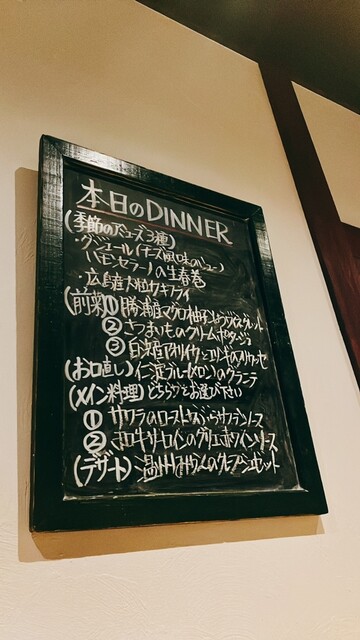 本日のDINNER
(季節のアミューズ3種)
・グジェール(チーズ風味のシュー)
ハモンセラーノの生春巻
・広島産大粒カキフライ
(前菜)① 勝浦産マグロ 柚子
② さつまいものクリームポタージュ
③ アオリイカと
(お口直し) 仁淀ブルーメロンのグラニテ
(メイン料理) どちらかをお選び下さい
① サワラのロースト サフランソース
② サーロインのグリエ 赤ワインソース
(デザート) 温州みかんのクレープシュゼット